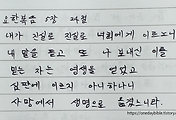 요한복음 5장 24절
내가 진실로 진실로 너희에게 이르노니
내 말을 듣고 또 나 보내신 이를
믿는 자는 영생을 얻었고
심판에 이르지 아니하나니
사망에서 생명으로 옮겼느니라.
https://onedaybible.tistory.